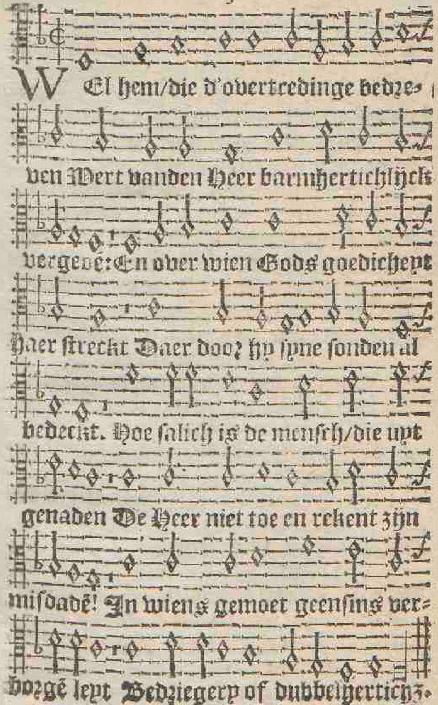 WEl hem/die d'overtredinge bedre-
ven Wert vanden Heer barmhertichlijck
vergevē: En over wien Gods goedicheyt
haer streckt Daer door hy syne sonden al
bedeckt. Hoe salich is de mensch/die uyt
genaden De Heer niet toe en rekent zijn
misdadē! In wiens gemoet geensins ver-
borgē leyt Bedriegery of dubbelhertich